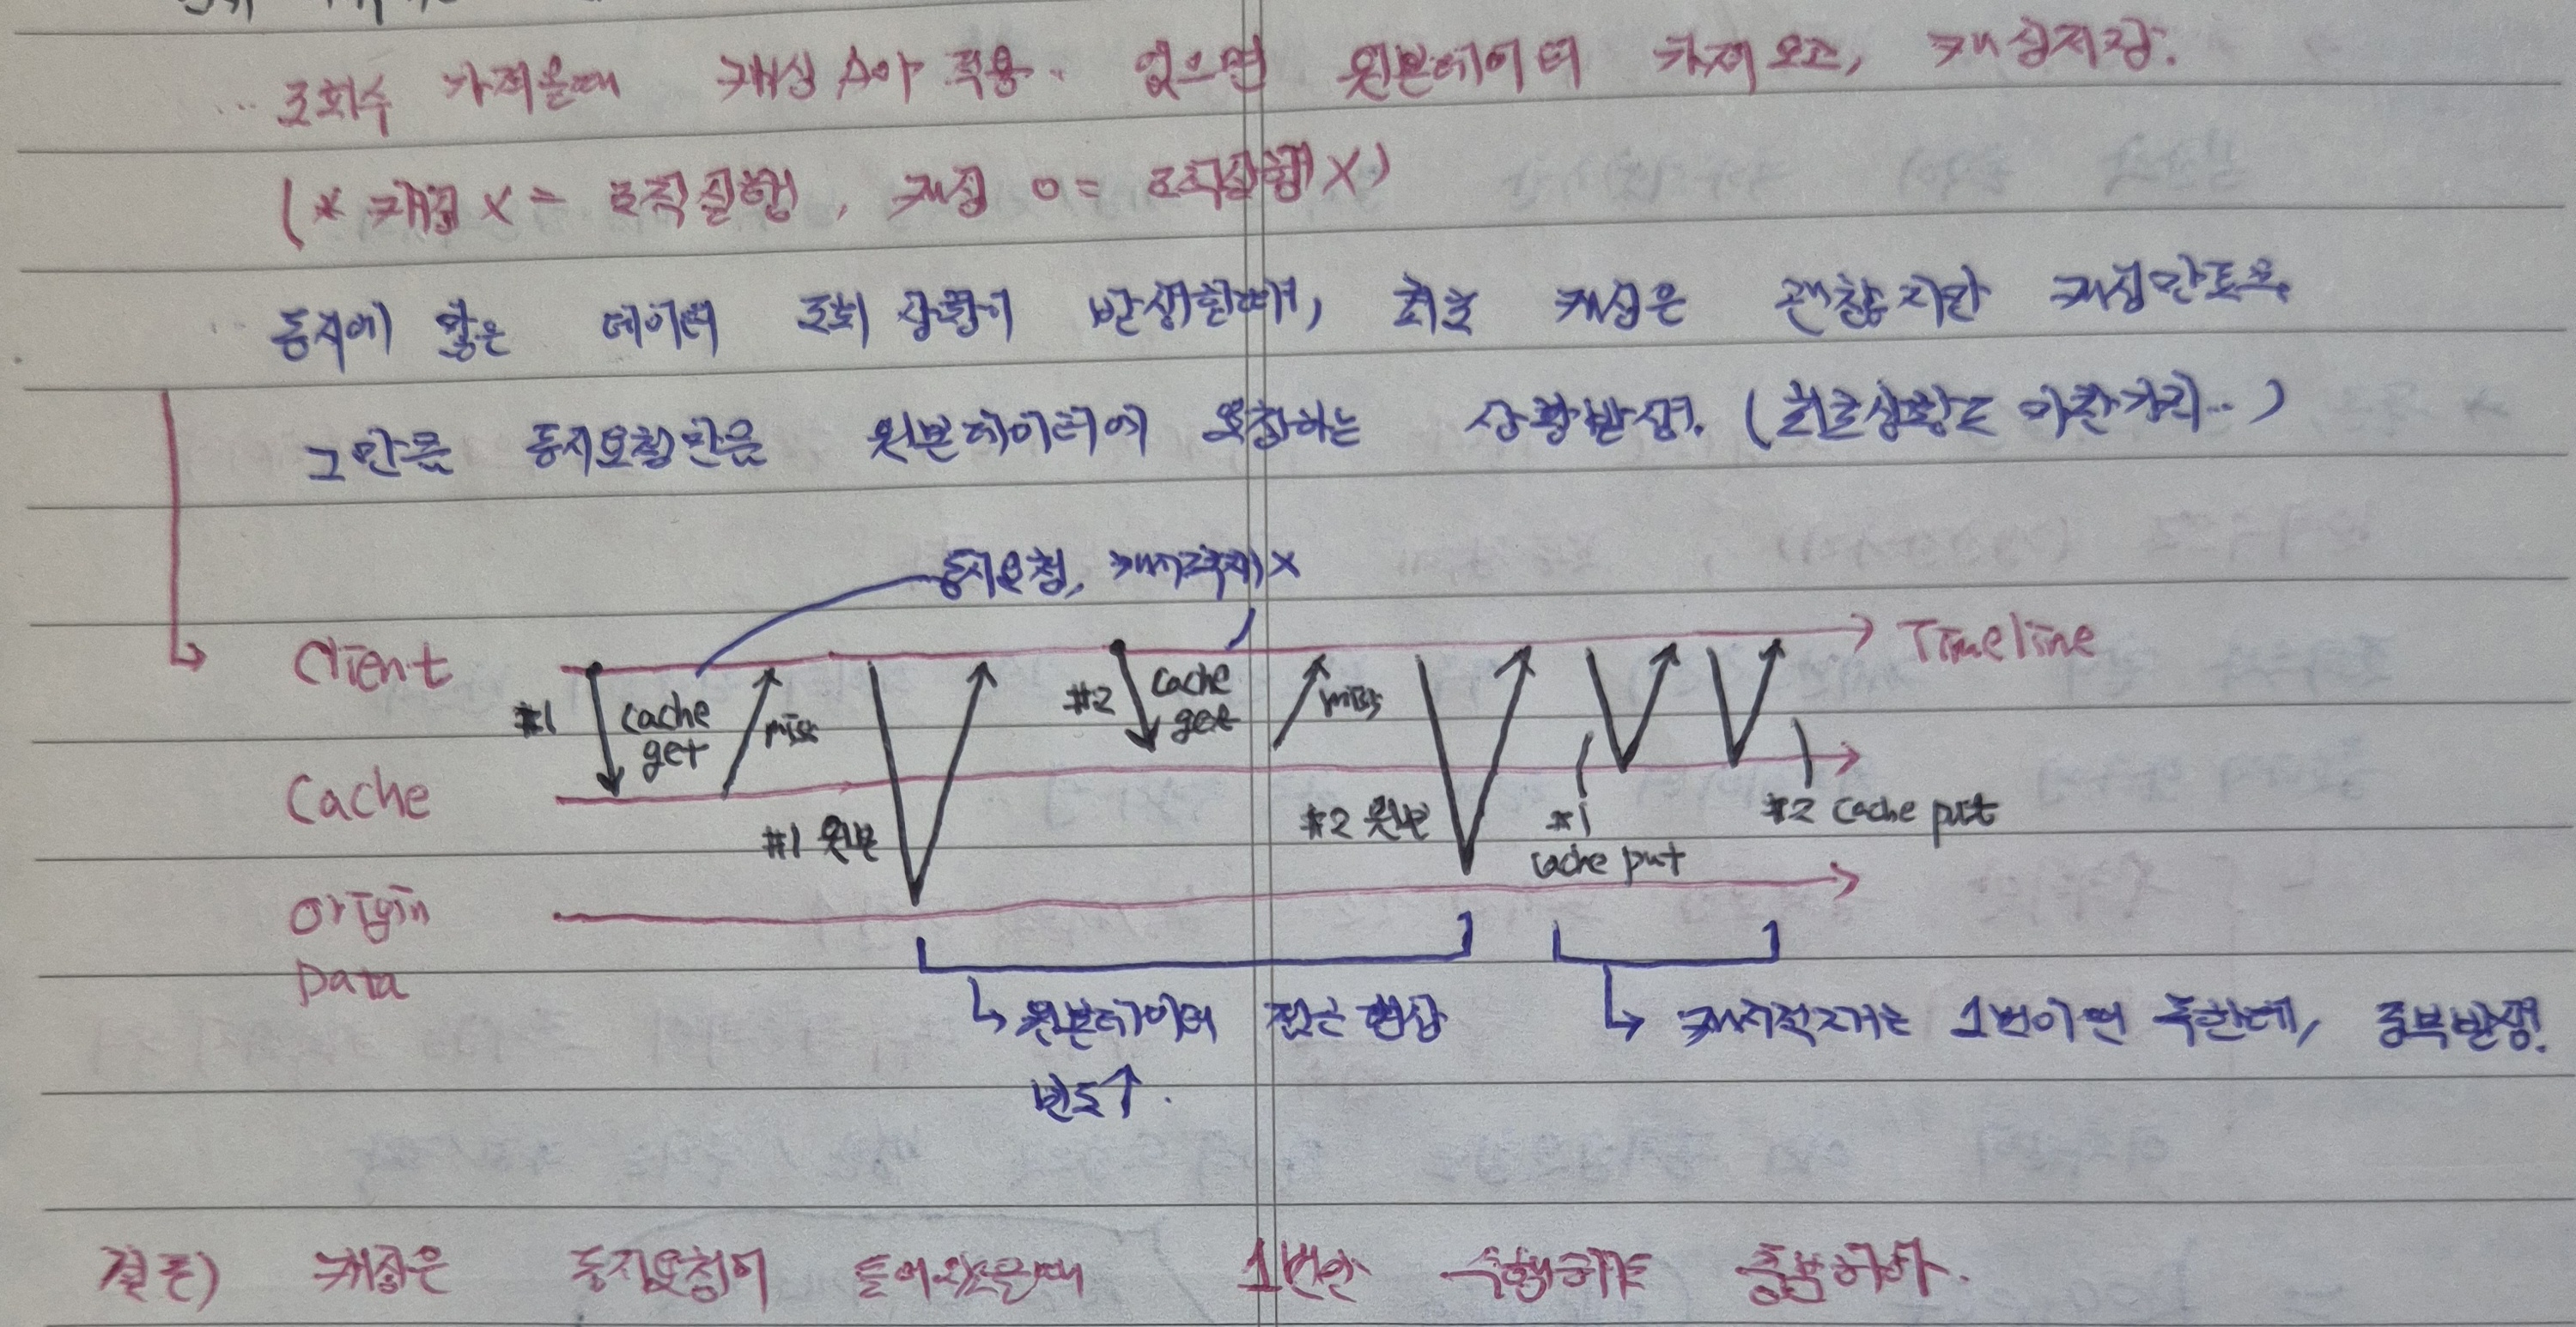 조회수 가져올때 캐싱 찾아 적용. 없으면 원본데이터 가져오고, 캐싱저장.
(* 캐싱 X = 로직실행, 캐싱 O = 로직실행 X)
동시에 많은 데이터 조회 상황이 발생한때, 최초 캐싱은 괜찮지만 캐싱만료후,
그만큼 동시요청만큼 원본데이터에 요청하는 상황발생. (최초상황도 마찬가지..)
동시요청, 캐시적재 X
Client
Timeline
#1 cache get
miss
#2 cache get
miss
Cache
#1 원본
#2 원본
#1 cache put
#2 cache put
Origin
Data
↳ 원본데이터 접근 현상
빈도↑.
↳ 캐시적재는 1번이면 족한데, 중복발생.
결론) 캐싱은 동시요청이 들어왔을때 1번만 수행해도 충분하다.